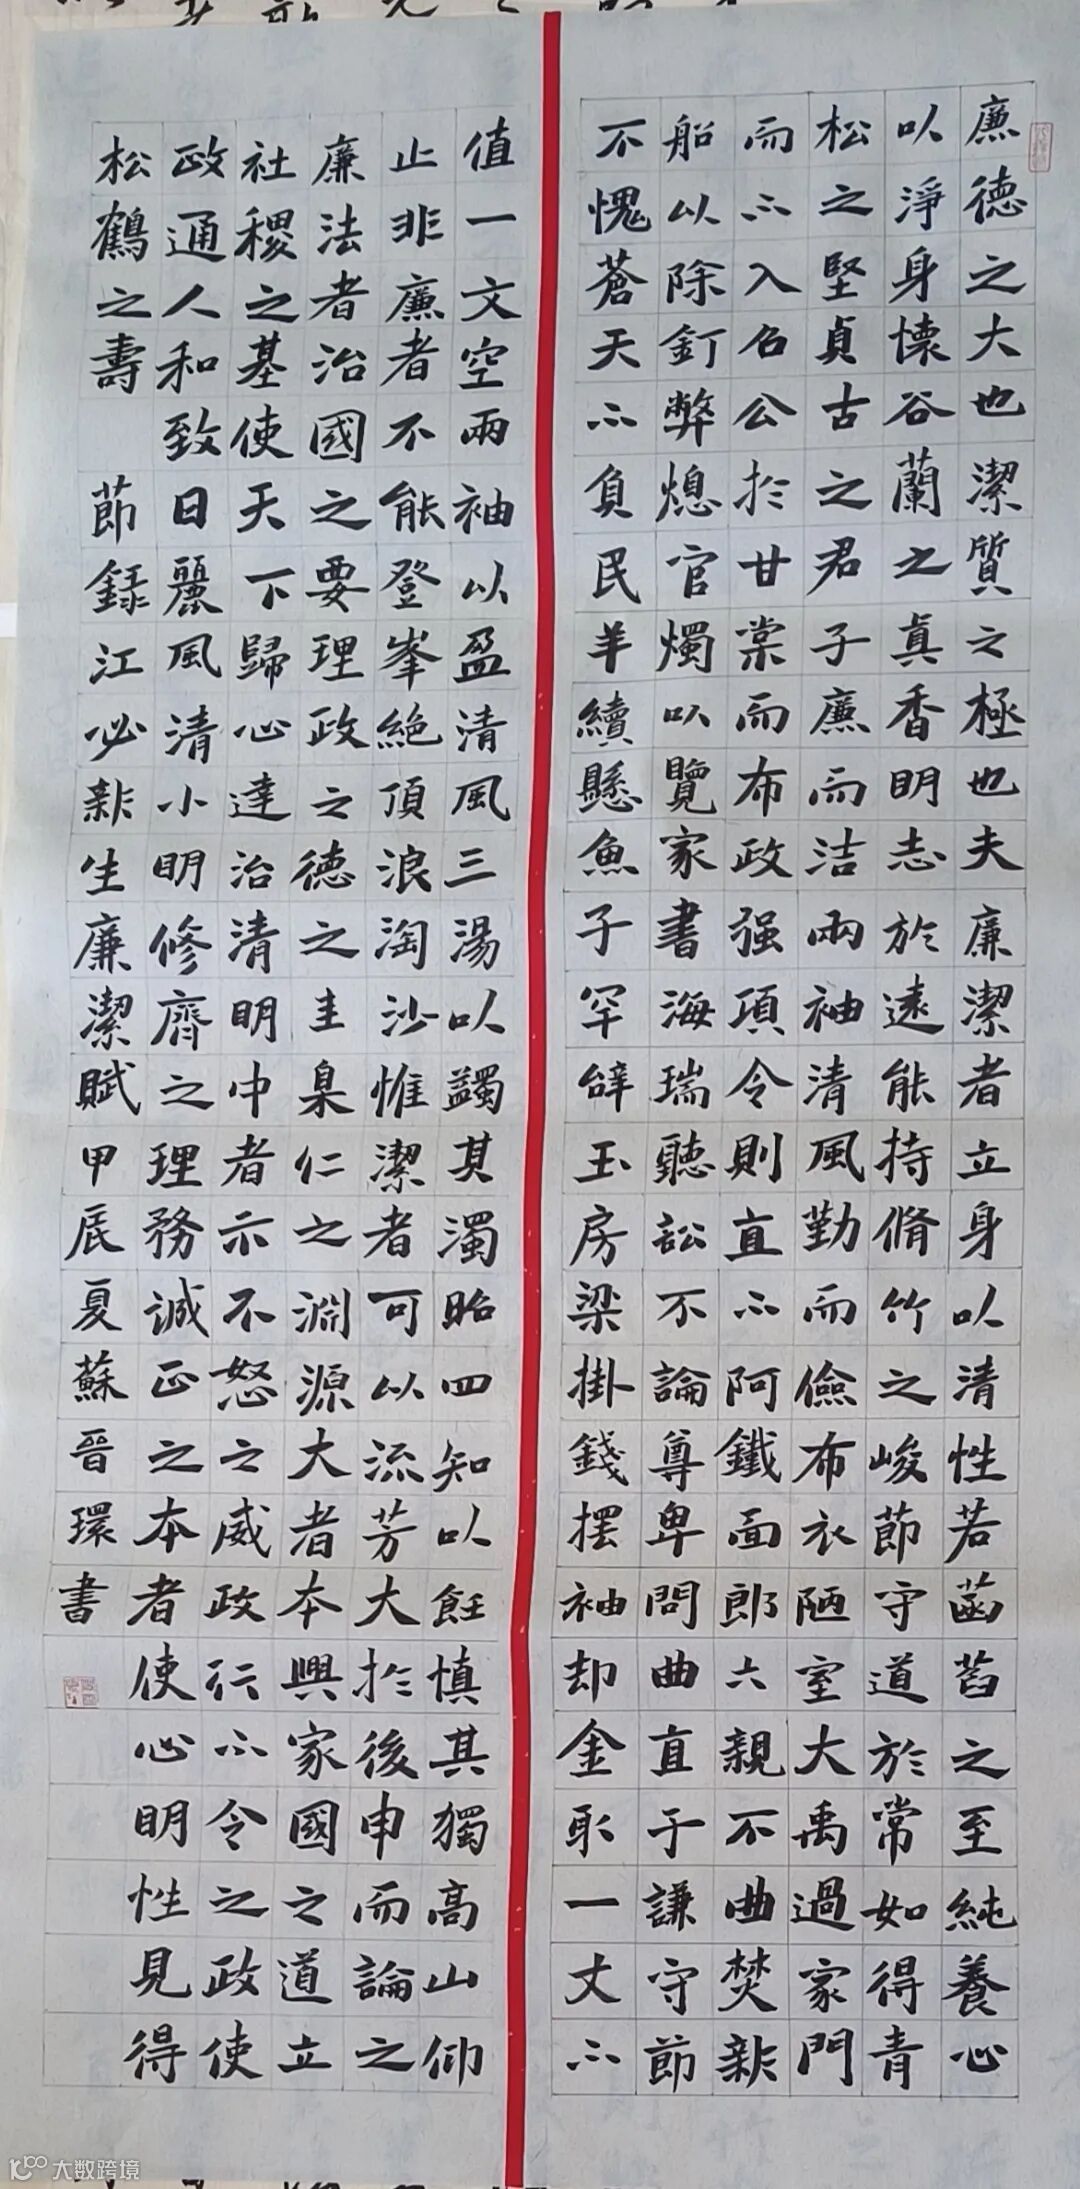 廉德之大也潔質之極也夫廉潔者立身以清性若菡萏之至純養心
以淨身懷谷蘭之真香明志於遠能持脩竹之峻節守道於常如得青
松之堅貞古之君子廉而洁兩袖清風勤而儉布衣陋室大禹過家門
而不入召公於甘棠而布政强項令則直不阿鐵面郎六親不曲焚新
船以除釘弊熄官燭以覽家書海瑞聽訟不論尊卑問曲直于謙守節
不愧蒼天不負民羊續懸魚子罕辞玉房梁掛錢擺袖却金耻一丈不
值一文空兩袖以盈清風三湯以蠲其濁昭四知以飪慎其獨高山仰
止非廉者不能登峯絶頂浪淘沙惟潔者可以流芳大於後申而論之
廉法者治國之要理政之德之圭臬仁之淵源大者本興家國之道立
社稷之基使天下歸心達治清明中者示不怒之威政行不令之政使
政通人和致日麗風清小明修齊之理務誠正之本者使心明性見得
松鶴之壽
節録江必新生廉潔賦甲辰夏蘇晉環書
大数跨境